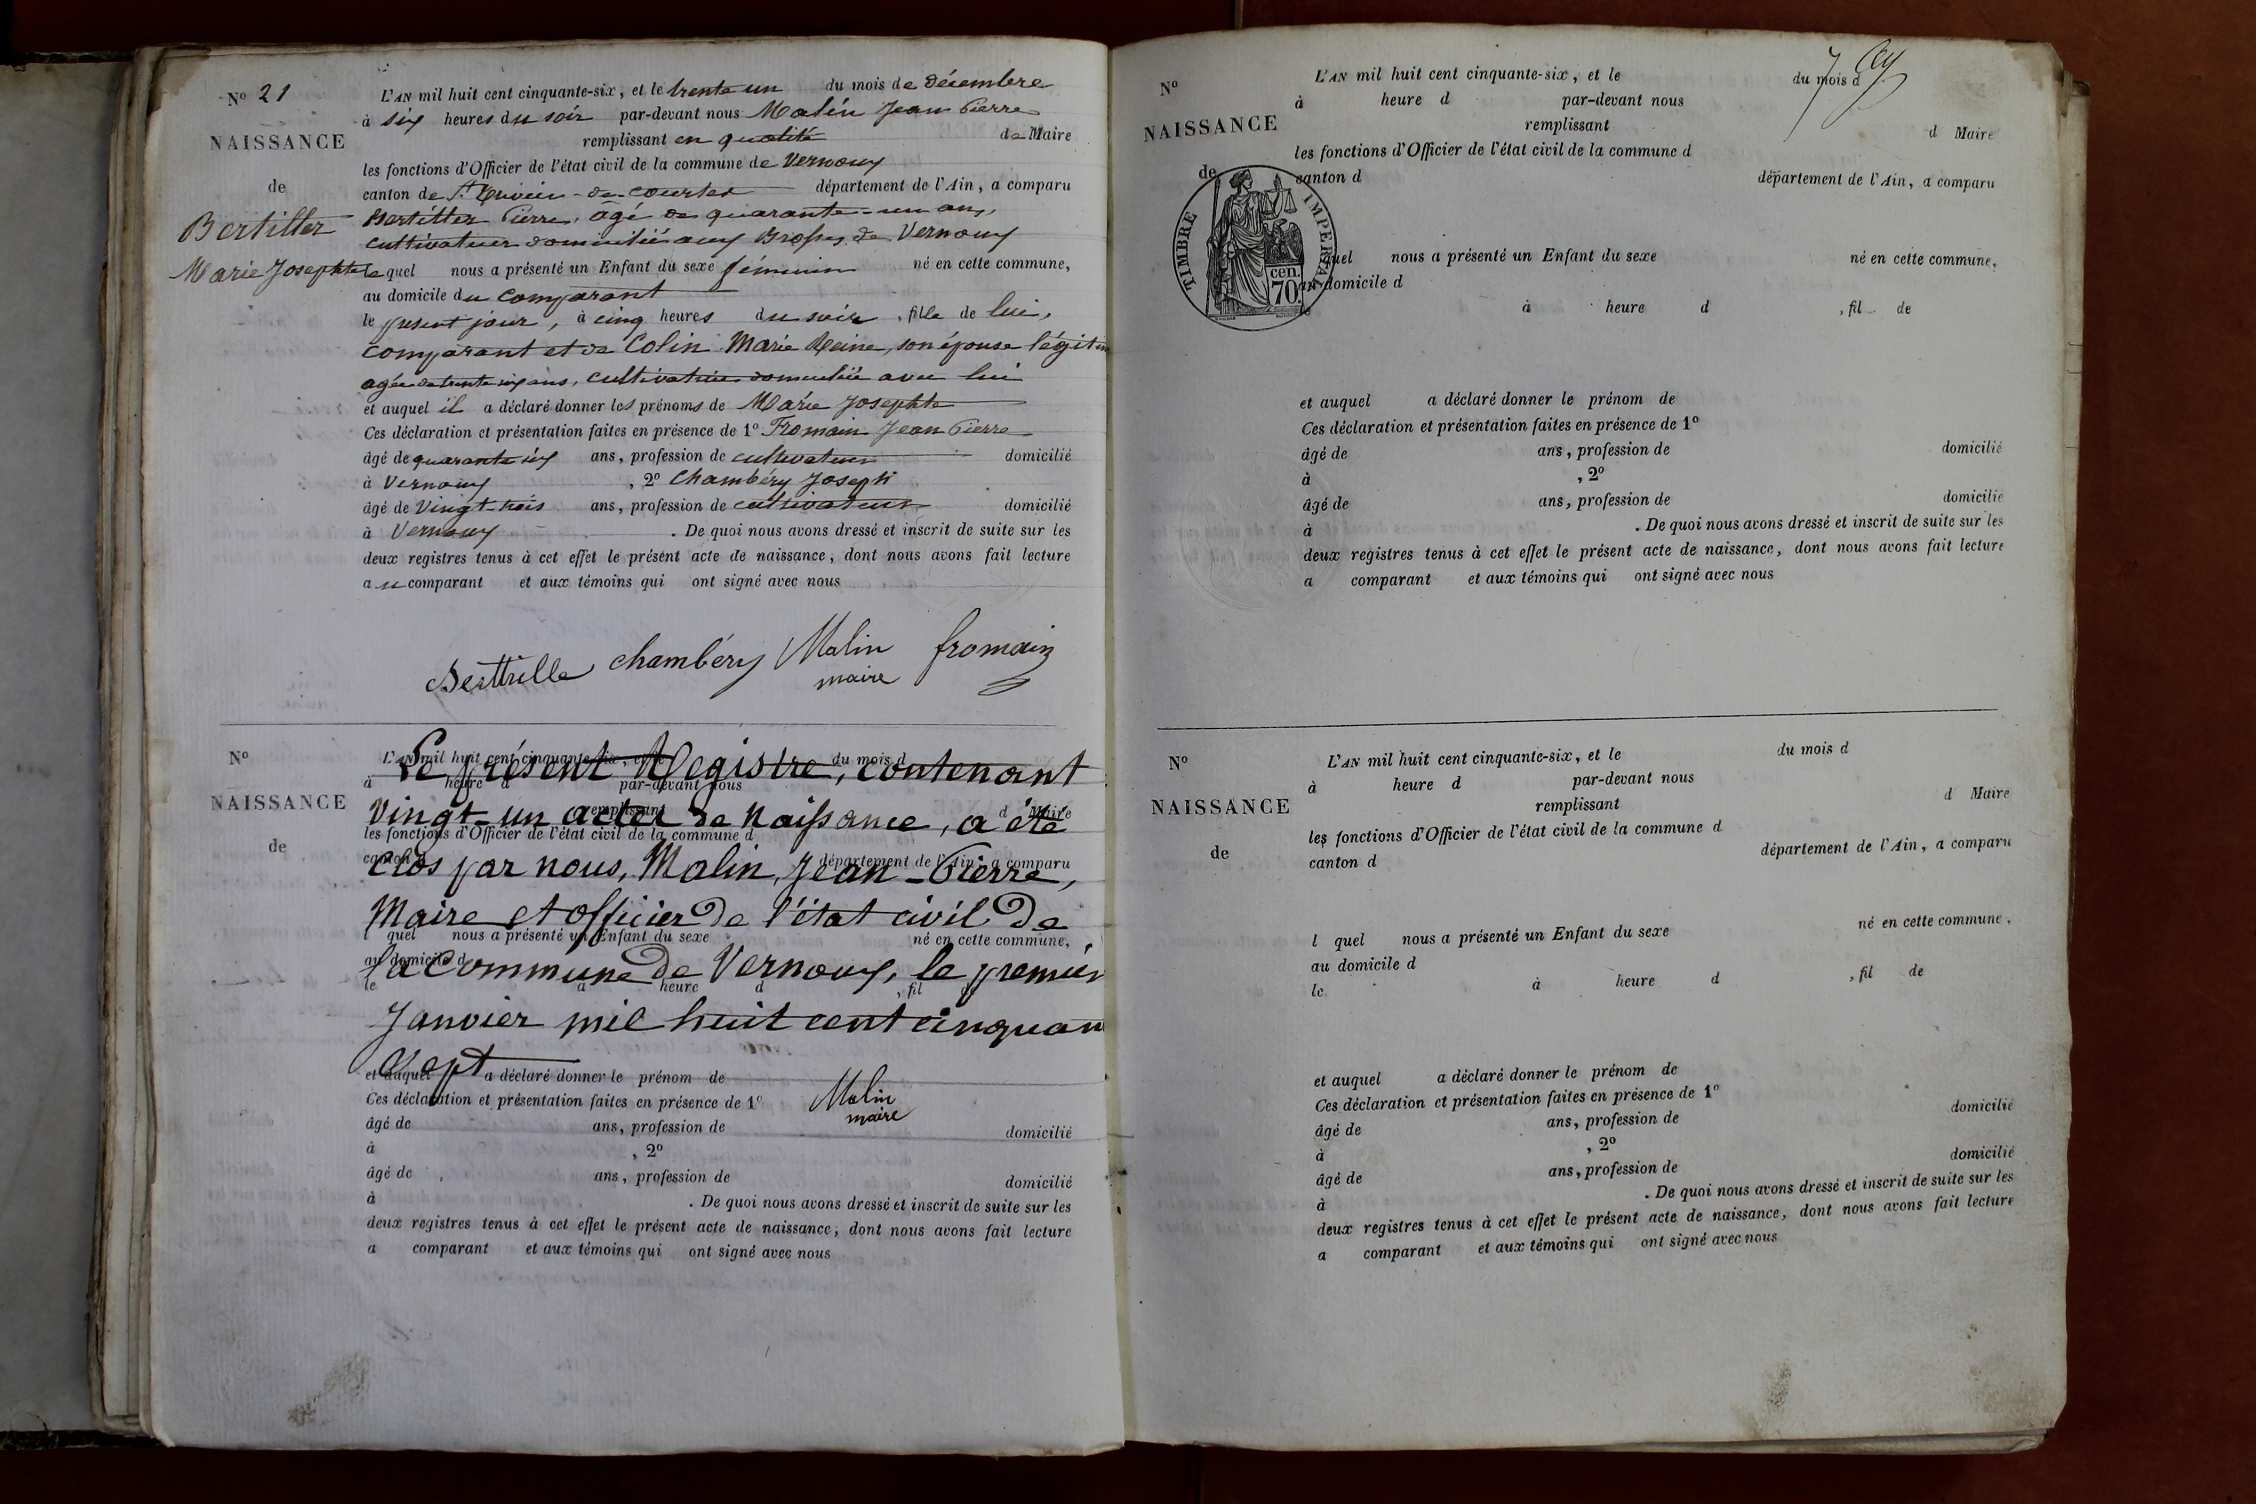 N° 21
NAISSANCE
de
Bertiller
Marie Josephte
L'AN mil huit cent cinquante-six, et le trente un du mois de décembre
à six heures du soir par-devant nous Malin Jean Pierre
remplissant en qualité de Maire
les fonctions d'Officier de l'état civil de la commune de Vernoux
canton de St Trivier de Courtes département de l'Ain, a comparu
Bertiller Pierre, âgé de quarante-un ans,
cultivateur domicilié aux Brosses de Vernoux
lequel nous a présenté un Enfant du sexe féminin né en cette commune,
au domicile du comparant
le présent jour, à cinq heures du soir, fille de lui,
comparant et de Colin Marie Reine, son épouse légitim
agée de trente six ans, cultivatrice domiciliée avec lui
et auquel il a déclaré donner les prénoms de Marie Josephte
Ces déclaration et présentation faites en présence de 1° Fromain Jean Pierre
âgé de quarante six ans, profession de cultivateur domicilié
à Vernoux, 2° Chambéry Joseph
âgé de vingt-trois ans, profession de cultivateur domicilié
à Vernoux. De quoi nous avons dressé et inscrit de suite sur les
deux registres tenus à cet effet le présent acte de naissance, dont nous avons fait lecture
au comparant et aux témoins qui ont signé avec nous
chambéry Malin fromain
maire
N°
NAISSANCE
de
L'AN mil huit cent cinquante-six, et le du mois d
à heure d par-devant nous
remplissant d Maire
les fonctions d'Officier de l'état civil de la commune d
canton d département de l'Ain, a comparu
l quel nous a présenté un Enfant du sexe né en cette commune,
au domicile d
le à heure d , fil de
Le présent Registre, contenant
Vingt-un actes de Naissance, a été
clos par nous, Malin, Jean-Pierre,
Maire et officier de l'état civil de
la commune de Vernoux, le premier
Janvier mil huit cent cinquan
sept
et auquel a déclaré donner le prénom de
Malin
maire
Ces déclaration et présentation faites en présence de 1°
âgé de ans, profession de domicilié
à , 2°
âgé de ans, profession de domicilié
à . De quoi nous avons dressé et inscrit de suite sur les
deux registres tenus à cet effet le présent acte de naissance, dont nous avons fait lecture
a comparant et aux témoins qui ont signé avec nous
N°
NAISSANCE
de
TIMBRE IMPERIAL
70 cen.
L'AN mil huit cent cinquante-six, et le du mois d
à heure d par-devant nous
remplissant d Maire
les fonctions d'Officier de l'état civil de la commune d
canton d département de l'Ain, a comparu
quel nous a présenté un Enfant du sexe né en cette commune,
au domicile d
le à heure d , fil de
et auquel a déclaré donner le prénom de
Ces déclaration et présentation faites en présence de 1°
âgé de ans, profession de domicilié
à , 2°
âgé de ans, profession de domicilié
à . De quoi nous avons dressé et inscrit de suite sur les
deux registres tenus à cet effet le présent acte de naissance, dont nous avons fait lecture
a comparant et aux témoins qui ont signé avec nous
N°
NAISSANCE
de
L'AN mil huit cent cinquante-six, et le du mois d
à heure d par-devant nous
remplissant d Maire
les fonctions d'Officier de l'état civil de la commune d
canton d département de l'Ain, a comparu
l quel nous a présenté un Enfant du sexe né en cette commune,
au domicile d
le à heure d , fil de
et auquel a déclaré donner le prénom de
Ces déclaration et présentation faites en présence de 1°
âgé de ans, profession de domicilié
à , 2°
âgé de ans, profession de domicilié
à . De quoi nous avons dressé et inscrit de suite sur les
deux registres tenus à cet effet le présent acte de naissance, dont nous avons fait lecture
a comparant et aux témoins qui ont signé avec nous